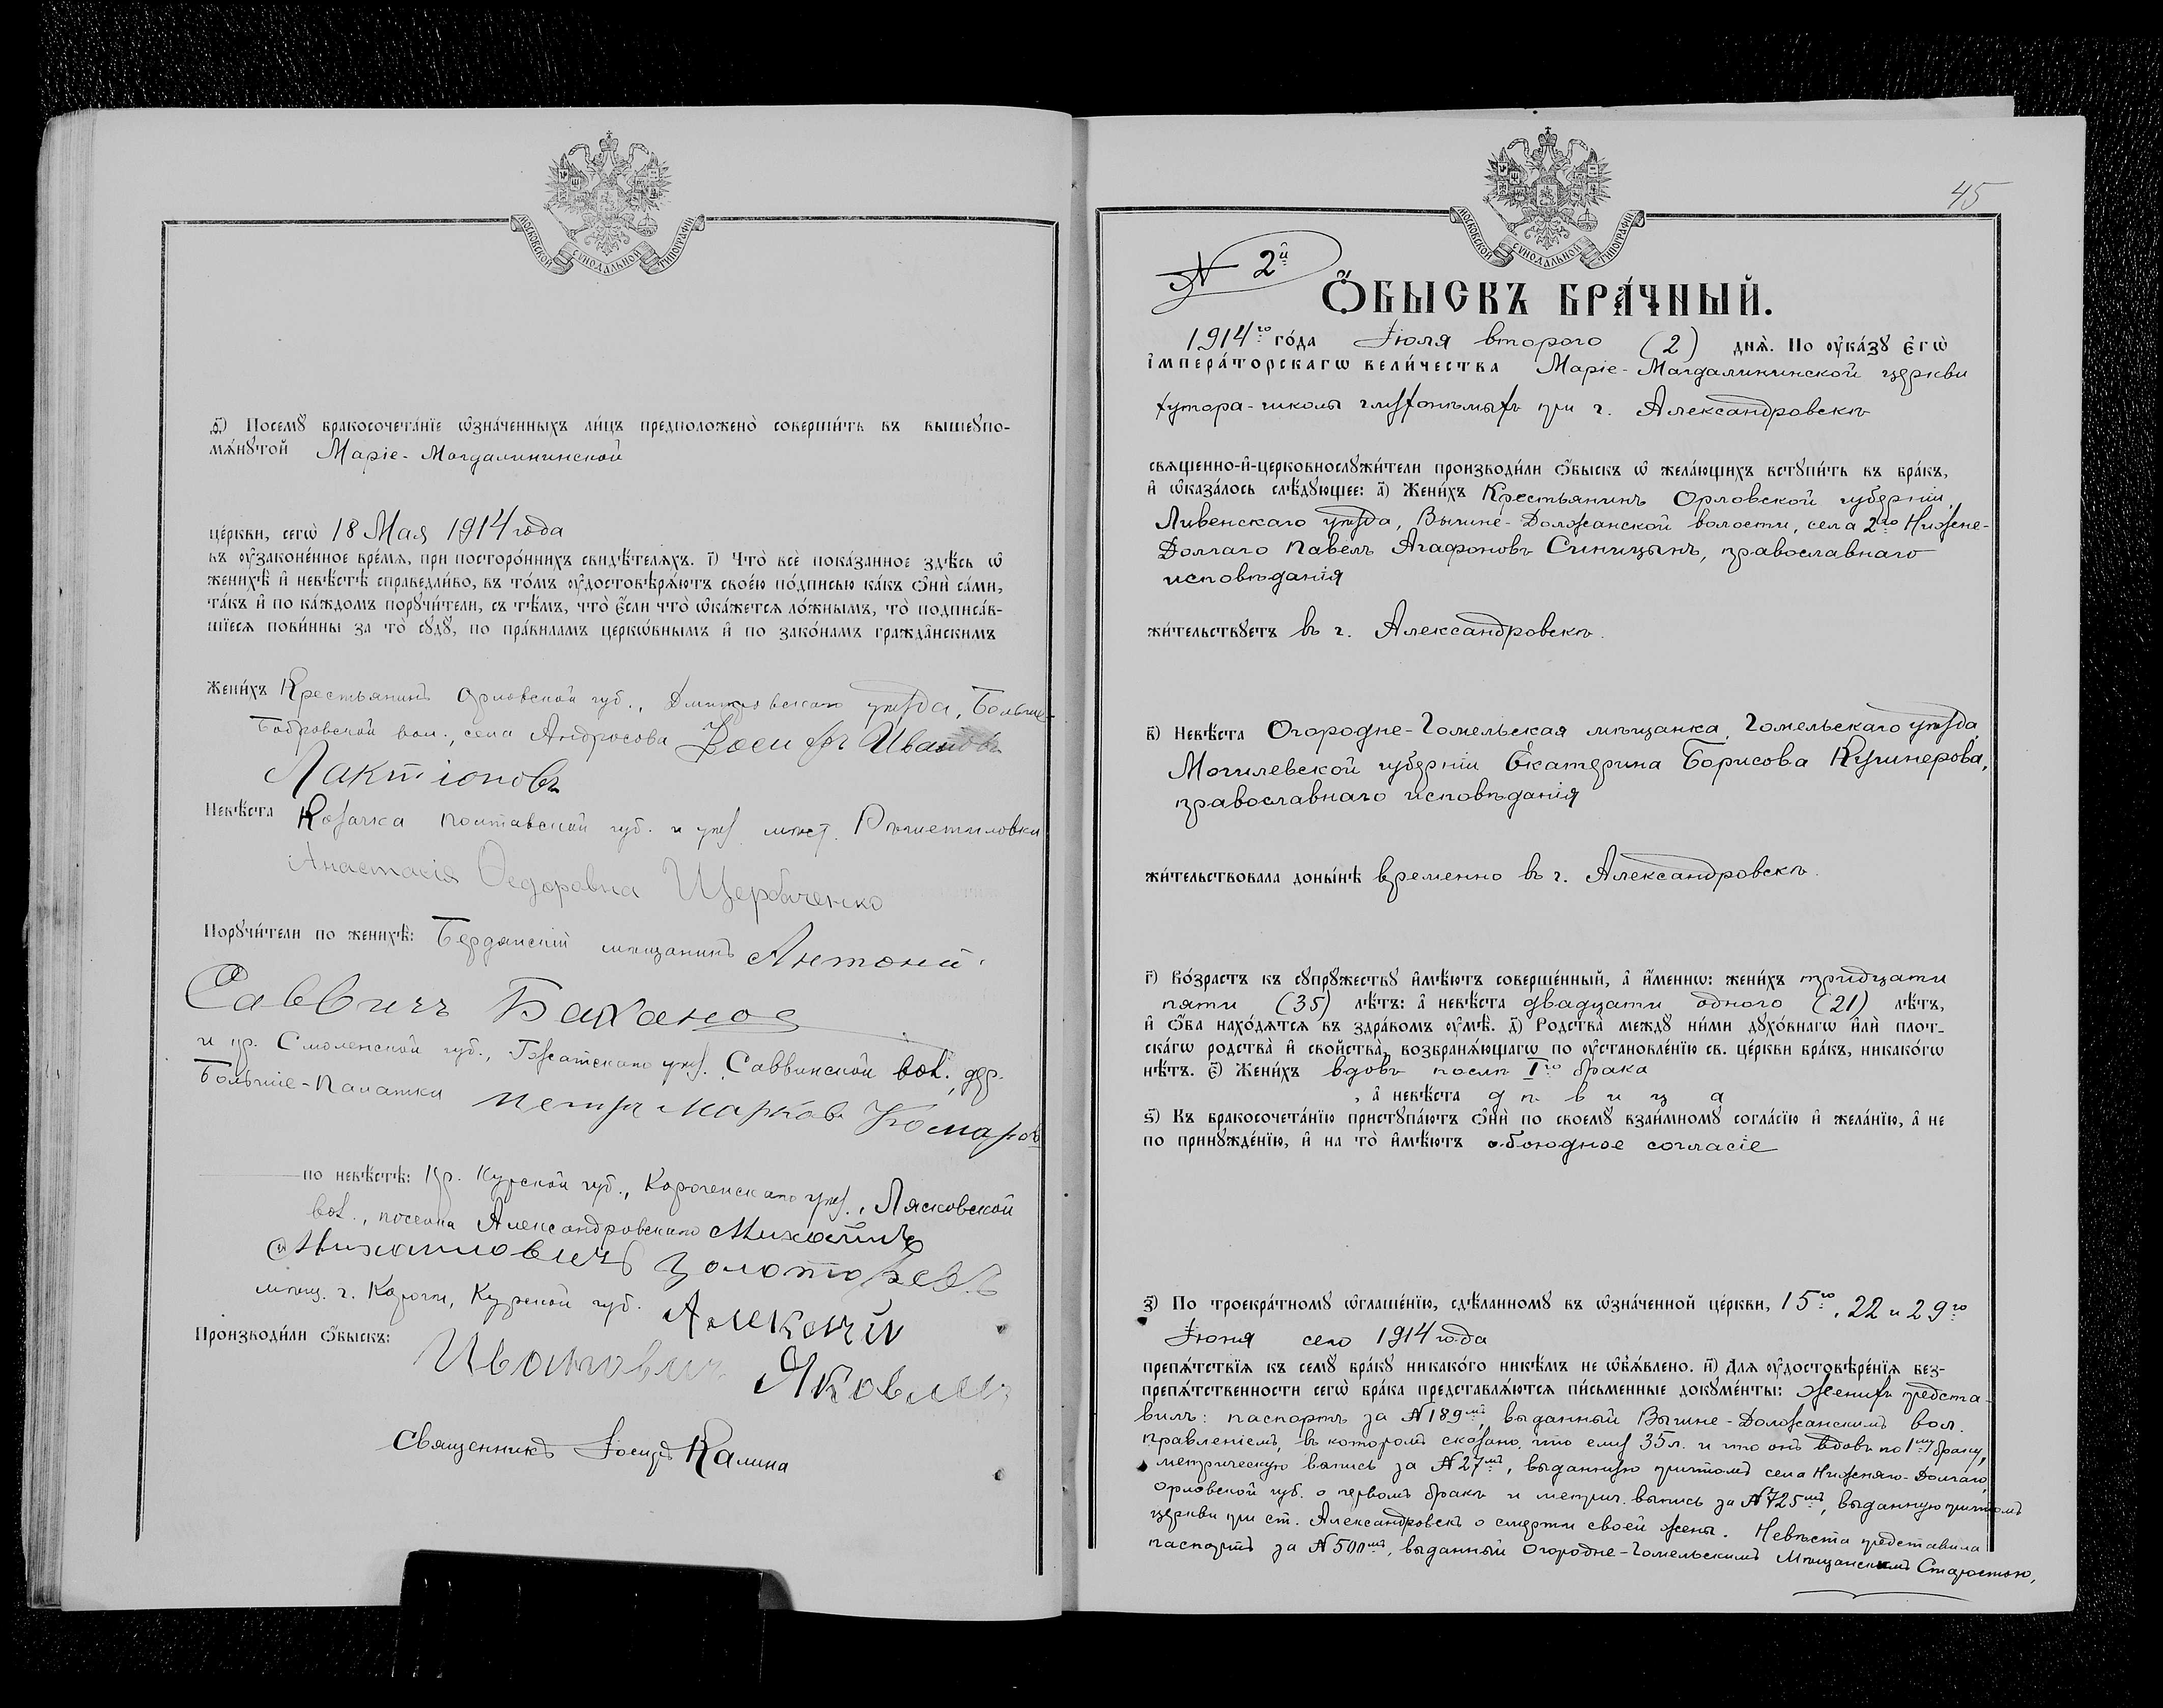 МОСКОВСКОЙ СУНОДАЛЬНОЙ ТИПОГРАФІИ
Посему бракосочетаніе ѡзначенныхъ лицъ предположено совершить въ вышеупо-
мянутой Маріе-Магдалининской
церкви, сегѡ 18 Мая 1914 года
въ узаконенное время, при постороннихъ свидѣтеляхъ. і) Что всё показанное здѣсь ѡ
женихѣ и невѣстѣ справедливо, въ томъ удостовѣряютъ своею подписью какъ ѻни сами,
такъ и по каждомъ поручители, съ тѣмъ, что если что ѡкажется ложнымъ, то подписав-
шіеся повинны за то суду, по правиламъ церкѡвнымъ и по законамъ гражданскимъ
Женихъ Крестьянинъ Орловской губ., Дмитровскаго уѣзда, Больше-
Бобровской вол., села Андросова Іосифъ Ивановъ
Лактіоновъ
Невѣста Козачка Полтавской губ. и уѣз. мѣст. Рѣшетиловки
Анастасія Ѳедоровна Щербаченко
Поручители по женихѣ: Бердянскій мѣщанинъ Антоній
Саввичъ Баханов
и кр. Смоленской губ., Гжатскаго уѣз. Саввинской вол., дер.
Большіе-Палатки Петръ Марковъ Комаровъ
по невѣстѣ: Кр. Курской губ., Короченскаго уѣз., Лясковской
вол., поселка Александровскаго Михаилъ
Михаиловичъ Золотаревъ
мѣщ. г. Корочи, Курской губ. Алексей
Производили ѻбыскъ: Иванович Яковлев
Священникъ Іосифъ Калина
45
МОСКОВСКОЙ СУНОДАЛЬНОЙ ТИПОГРАФІИ
№ 2й
ѺБЫСКЪ БРАЧНЫЙ.
1914го года Іюля второго (2) дня. По указу егѡ
императорскагѡ величества Маріе-Магдалининской церкви
хутора-школы глухонѣмыхъ при г. Александровскѣ
священно-и-церковнослужители производили ѻбыскъ ѡ желающихъ вступить въ бракъ,
и ѡказалось слѣдующее: а) Женихъ Крестьянинъ Орловской губерніи,
Ливенскаго уѣзда, Вышне-Должанской волости, села 2го Нижне-
Долгаго Павелъ Агафоновъ Синицынъ, православнаго
исповѣданія
жительствуетъ въ г. Александровскѣ.
в) Невѣста Огородне-Гомельская мѣщанка, Гомельскаго уѣзда
Могилевской губерніи Екатерина Борисова Кушнерова,
православнаго исповѣданія
жительствовала донынѣ временно въ г. Александровскѣ.
г) Возрастъ къ супружеству имѣютъ совершенный, а именнѡ: женихъ тридцати
пяти (35) лѣтъ: а невѣста двадцати одного (21) лѣтъ,
и ѻба находятся въ здравомъ умѣ. д) Родства между ними духовнагѡ или плот-
скагѡ родства и свойства, возбраняющагѡ по установленію св. церкви бракъ, никакогѡ
нѣтъ. е) Женихъ вдовъ послѣ Iго брака
, а невѣста дѣвица
ѕ) Къ бракосочетанію приступаютъ ѻни по своему взаимному согласію и желанію, а не
по принужденію, и на то имѣютъ обоюдное согласіе
з) По троекратному ѡглашенію, сдѣланному въ ѡзначенной церкви, 15го, 22 и 29го
Іюня сего 1914 года
препятствія къ сему браку никакого никѣмъ не ѡбъявлено. и) Для удостовѣренія без-
препятственности сегѡ брака представляются письменные документы: женихъ предста-
вилъ: паспортъ за № 189мъ, выданный Вышне-Должанскимъ вол.
правленіемъ, въ которомъ сказано, что ему 35 л. и что онъ вдовъ по 1му браку,
метрическую выпись за № 27мъ, выданную причтомъ села Нижняго-Долгаго,
Орловской губ. о первомъ бракѣ и метрич. выпись за № 725мъ, выданную причтомъ
церкви при ст. Александровскъ о смерти своей жены. Невѣста представила
паспортъ за № 500мъ, выданный Огородне-Гомельскимъ Мѣщанскимъ Старостою,